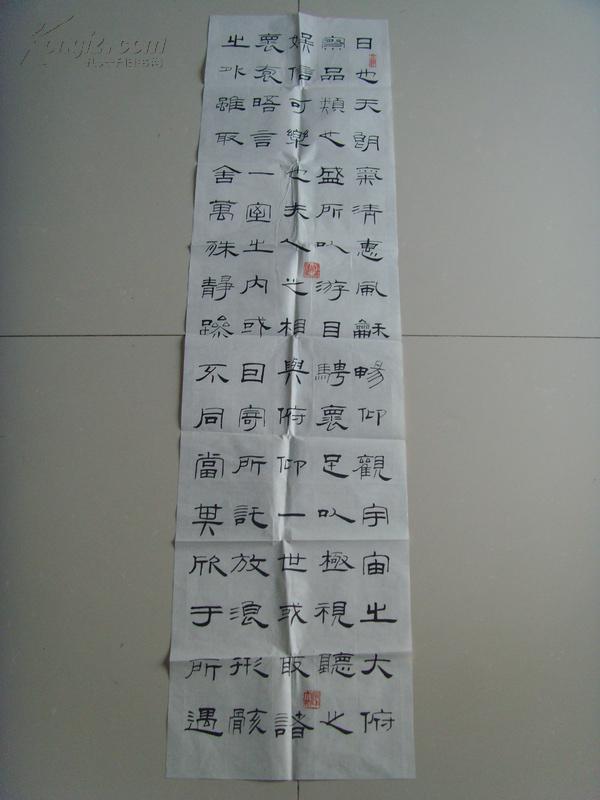 日也天朗氣清惠風龢暢仰觀宇宙之大俯
察品類之盛所以游目騁褱足以極視聽之
娛信可樂也夫人之相與俯仰一世或取諸
褱袌晤言一室之内或因寄所託放浪形骸
之外雖取舍萬殊靜躁不同當其欣于所遇